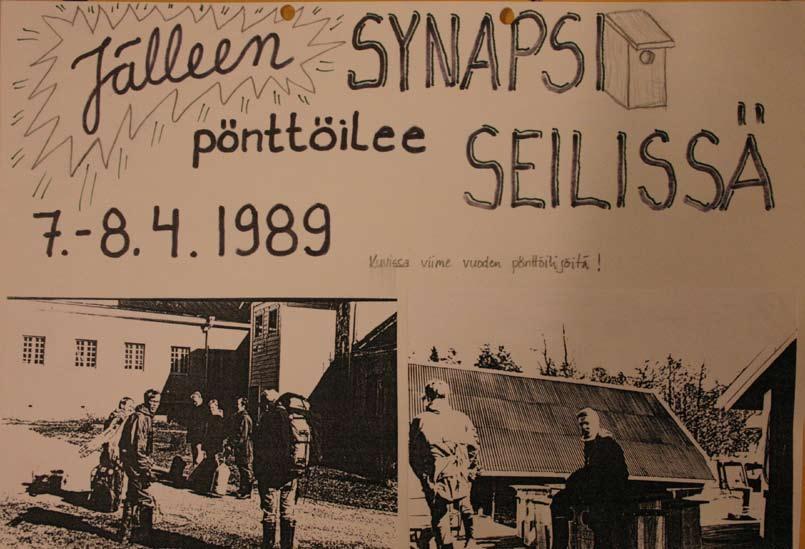 Jälleen SYNAPSI
pönttöilee SEILISSÄ
7.-8.4.1989
Kuvissa viime vuoden pönttöilijöitä!